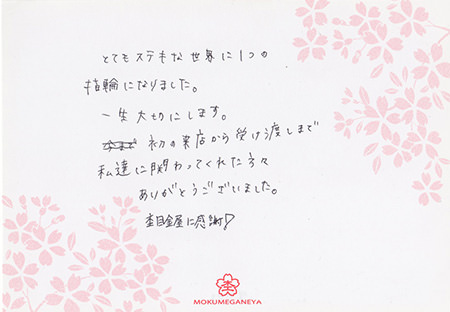 とてもステキな世界に1つの
指輪になりました。
一生大切にします。
初の来店から受け渡しまで
私達に関わってくれた方々
ありがとうございました。
杢目金屋に感謝♪
MOKUMEGANEYA